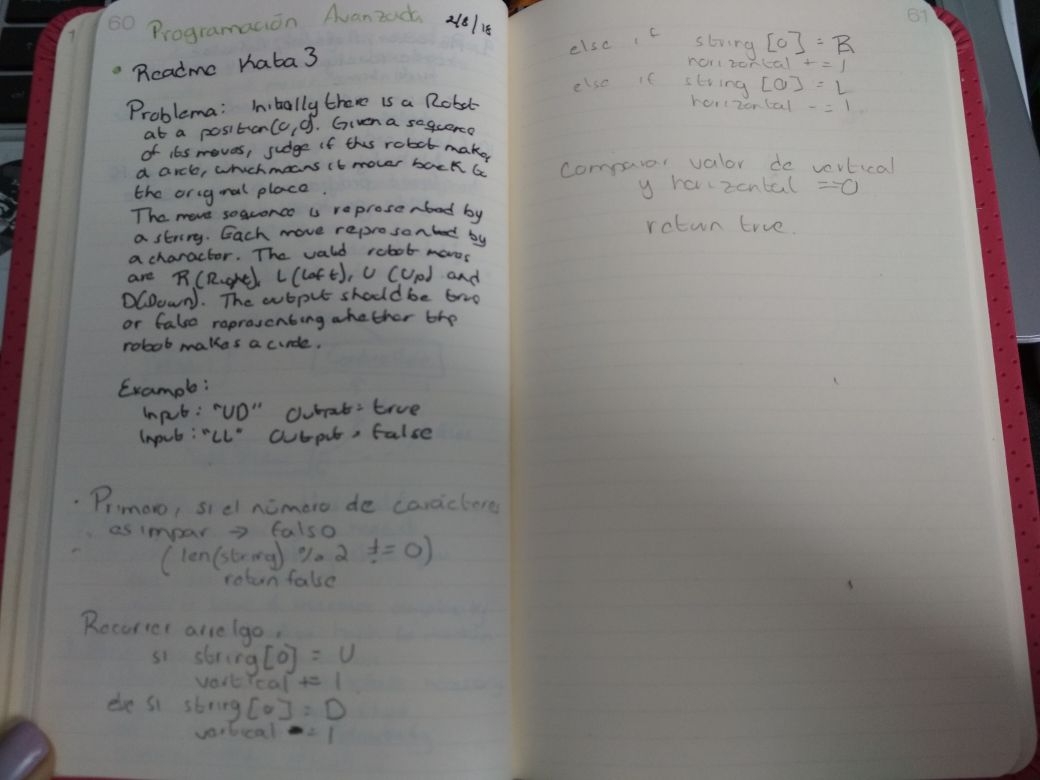 60
Programación Avanzada 2/8/18
• Readme Kata 3
Problema: Initially there is a Robot
at a position (0,0). Given a sequence
of its moves, judge if this robot makes
a circle, which means it moves back to
the original place.
The move sequence is represented by
a string. Each move represented by
a character. The valid robot moves
are R (Right), L (Left), U (Up) and
D(Down). The output should be true
or false representing whether the
robot makes a circle.
Example:
Input: "UD" Output= true
Input: "LL" Output= false
· Primero, si el número de carácteres
es impar → falso
(len(string) % 2 != 0)
return false
Recorrer arrelgo,
si string[0] = U
vertical += 1
else si string[0] = D
vertical -= 1
61
else if string[0] = R
horizontal += 1
else if string[0] = L
horizontal -= 1
Comparar valor de vertical
y horizontal ==0
return true.